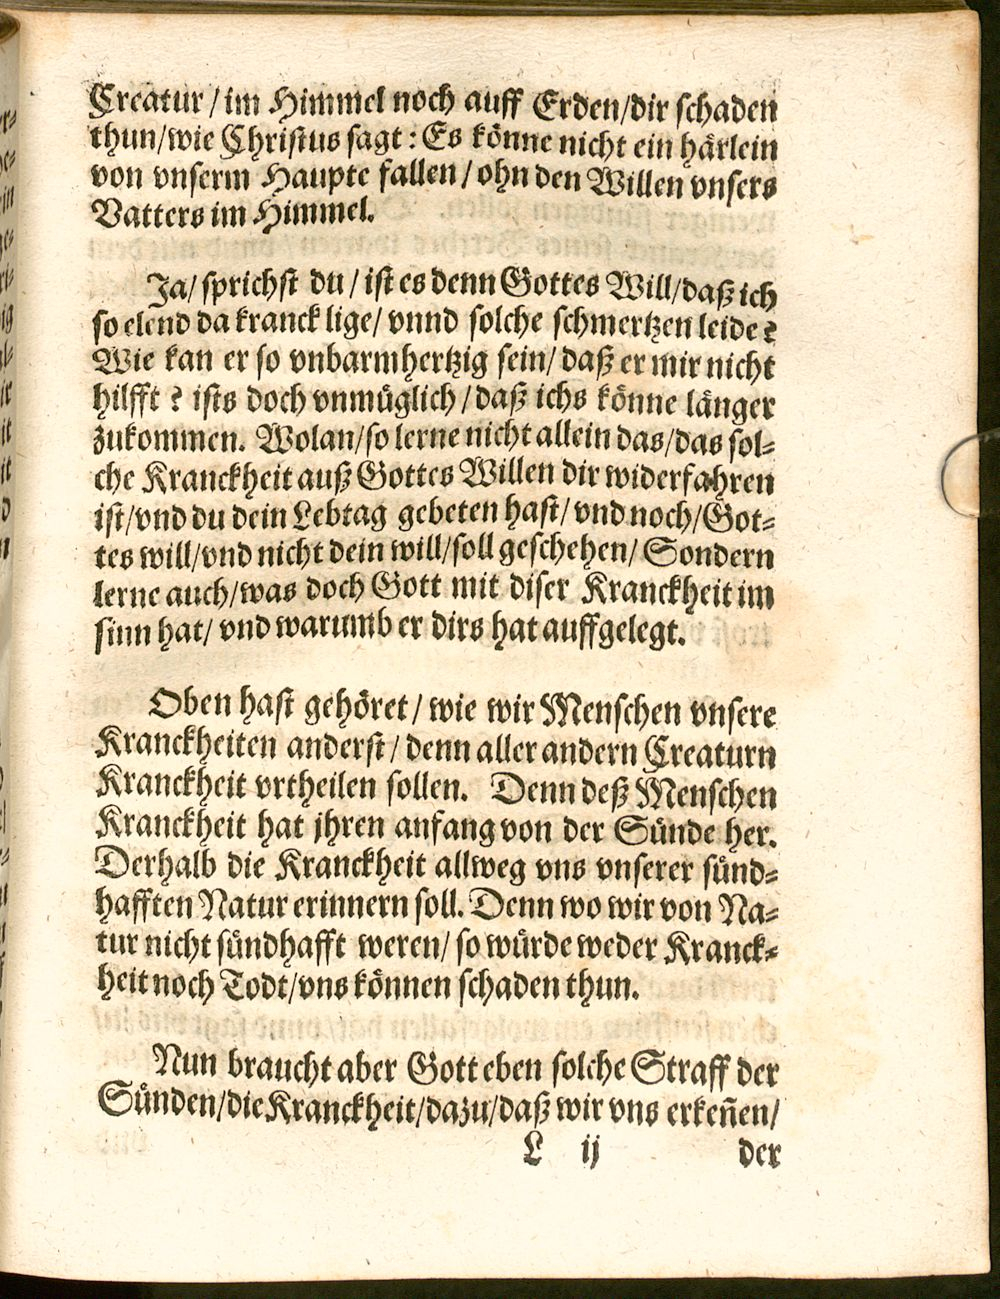 Creatur / im Himmel noch auff Erden/dir schaden
thun/wie Christus sagt: Es könne nicht ein härlein
von vnserm Haupte fallen / ohn den Willen vnsers
Vatters im Himmel.
Ja/ sprichst du / ist es denn Gottes Will/daß ich
so elend da kranck lige/ vnnd solche schmertzen leide?
Wie kan er so vnbarmhertzig sein/ daß er mir nicht
hilfft? ists doch vnmüglich / daß ichs könne länger
zukommen. Wolan/so lerne nicht allein das/das sol-
che Kranckheit auß Gottes Willen dir widerfahren
ist/vnd du dein Lebtag gebeten hast/ vnd noch/Got-
tes will/vnd nicht dein will/soll geschehen/ Sondern
lerne auch/was doch Gott mit diser Kranckheit im
sinn hat/ vnd warumb er dirs hat auffgelegt.
Oben hast gehöret / wie wir Menschen vnsere
Kranckheiten anderst / denn aller andern Creaturn
Kranckheit vrtheilen sollen. Denn deß Menschen
Kranckheit hat jhren anfang von der Sünde her.
Derhalb die Kranckheit allweg vns vnserer sünd-
hafften Natur erinnern soll. Denn wo wir von Na-
tur nicht sündhafft weren/ so würde weder Kranck-
heit noch Todt/vns können schaden thun.
Nun braucht aber Gott eben solche Straff der
Sünden/die Kranckheit/dazu/daß wir vns erkeñen/
L ij der